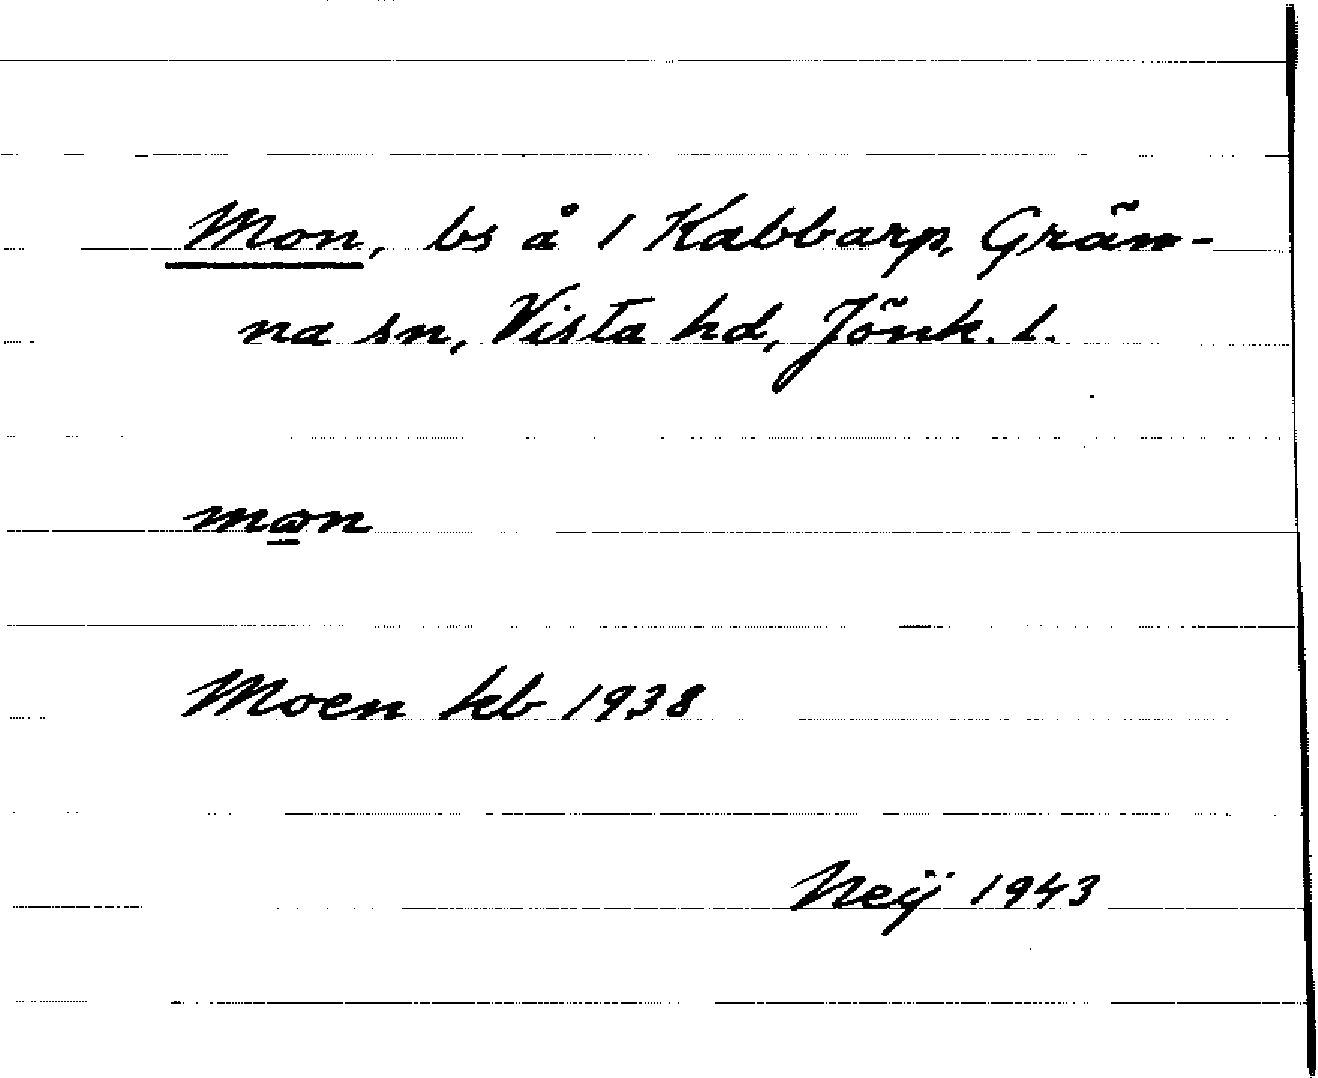 Mon, bs å 1 Kabbarp, Grän-
na sn, Vista hd, Jönk. l.
mon
Moen kb 1938
Neij 1943